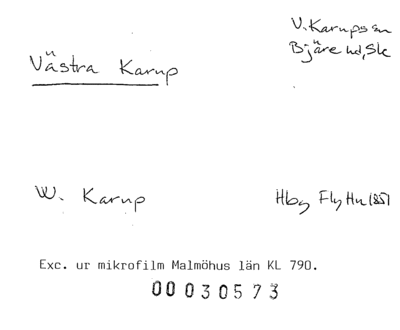 V. Karups sn
Bjäre hd, Sk
Västra Karup
W. Karup
Hbg Fly Hu 1851
Exc. ur mikrofilm Malmöhus län KL 790.
00 030573